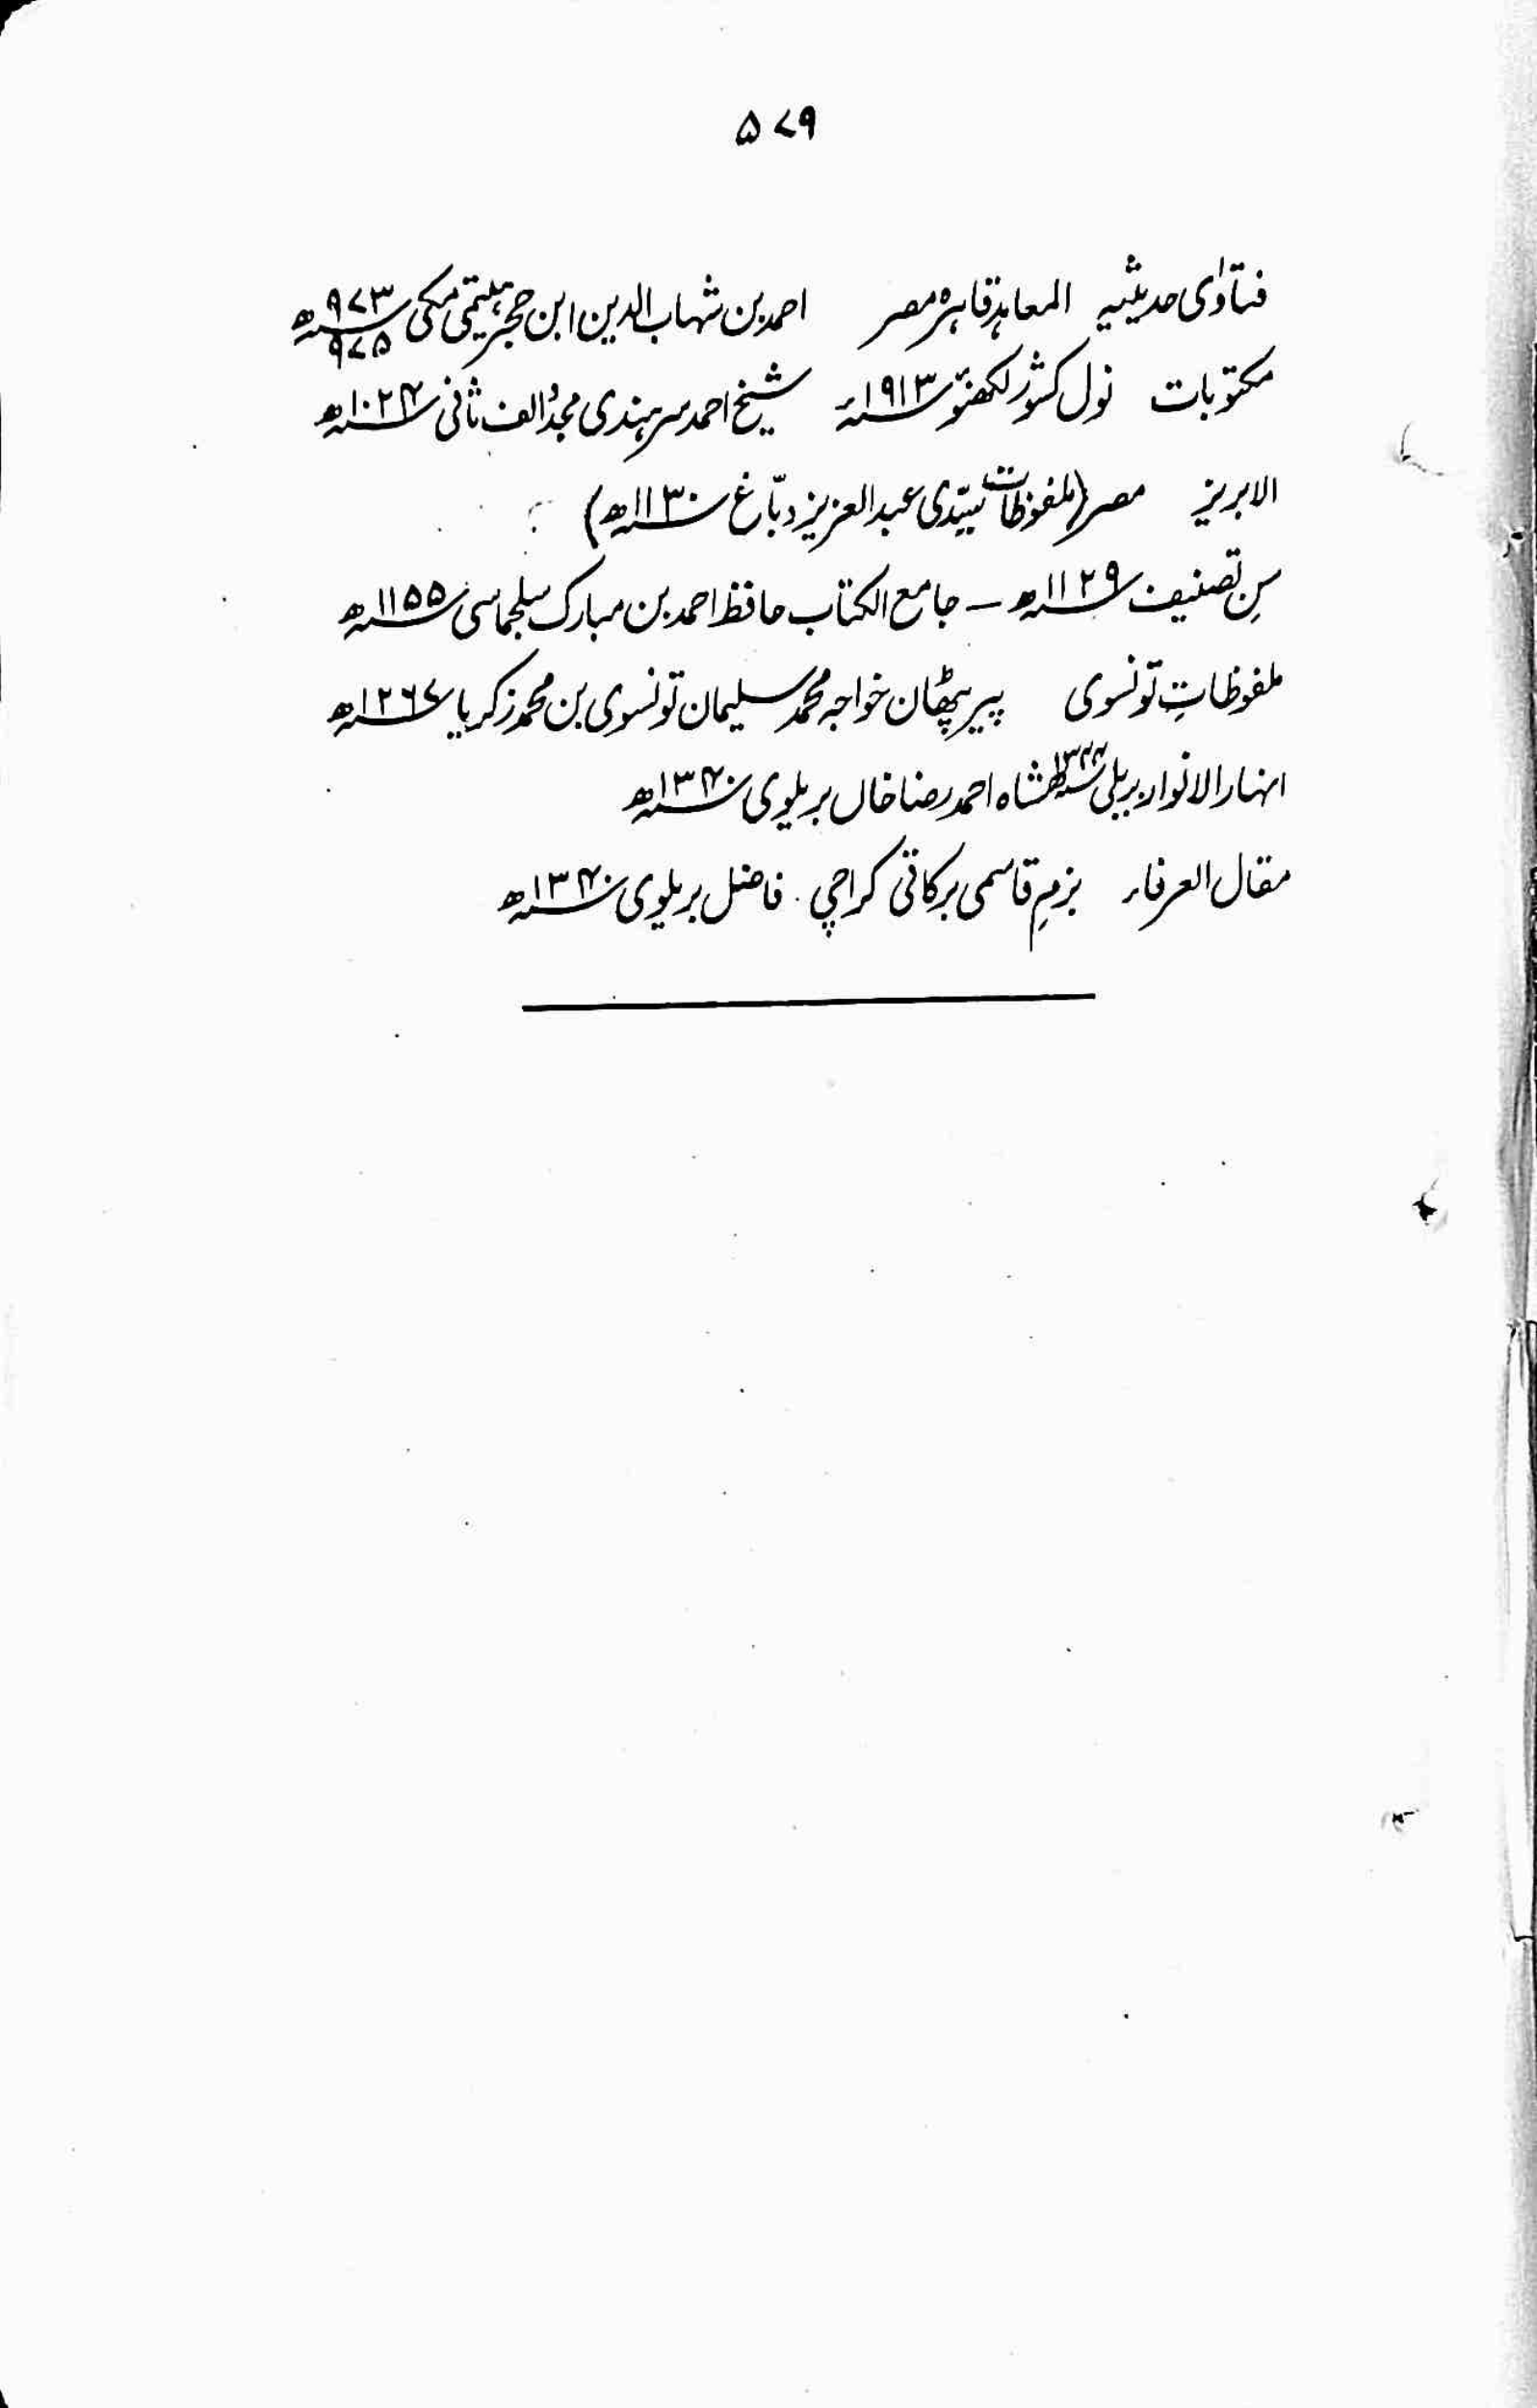 ۵۷۹
فتاوٰی حدیثیہ المعاہد قاہرہ مصر احمد بن شہاب الدین ابن حجر ہیتمی مکی ۹۷۳ھ ۹۷۵
مکتوبات نول کشور لکھنؤ ۱۹۱۳ء شیخ احمد سرہندی مجدد الف ثانی ۱۰۲۴ھ
الابریز مصر (ملفوظات سیّدی عبدالعزیز دبّاغ ۱۱۳۰ھ)
سنِ تصنیف ۱۱۲۹ھ ـ جامع الکتاب حافظ احمد بن مبارک سلجماسی ۱۱۵۵ھ
ملفوظاتِ تونسوی پیر پٹھان خواجہ محمد سلیمان تونسوی بن محمد زکریا ۱۲۶۷ھ
انہار الانوار بریلی ۱۳۴۴ھ شاہ احمد رضا خاں بریلوی ۱۳۴۰ھ
مقال العرفاء بزمِ قاسمی برکاتی کراچی . فاضل بریلوی ۱۳۴۰ھ